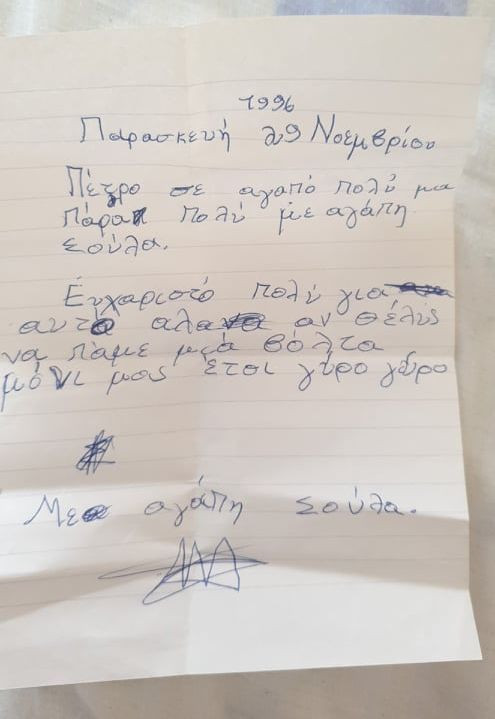 1996
Παρασκευή 29 Νοεμβρίου
Πέτρο σε αγαπό πολύ μα
πάρα πολύ με αγάπη
Σούλα.
Ευχαριστό πολύ για
αυτο αλα αν θέλις
να πάμε μιά βόλτα
μόνι μας έτσι γύρο γύρο
Με αγάπη Σούλα.